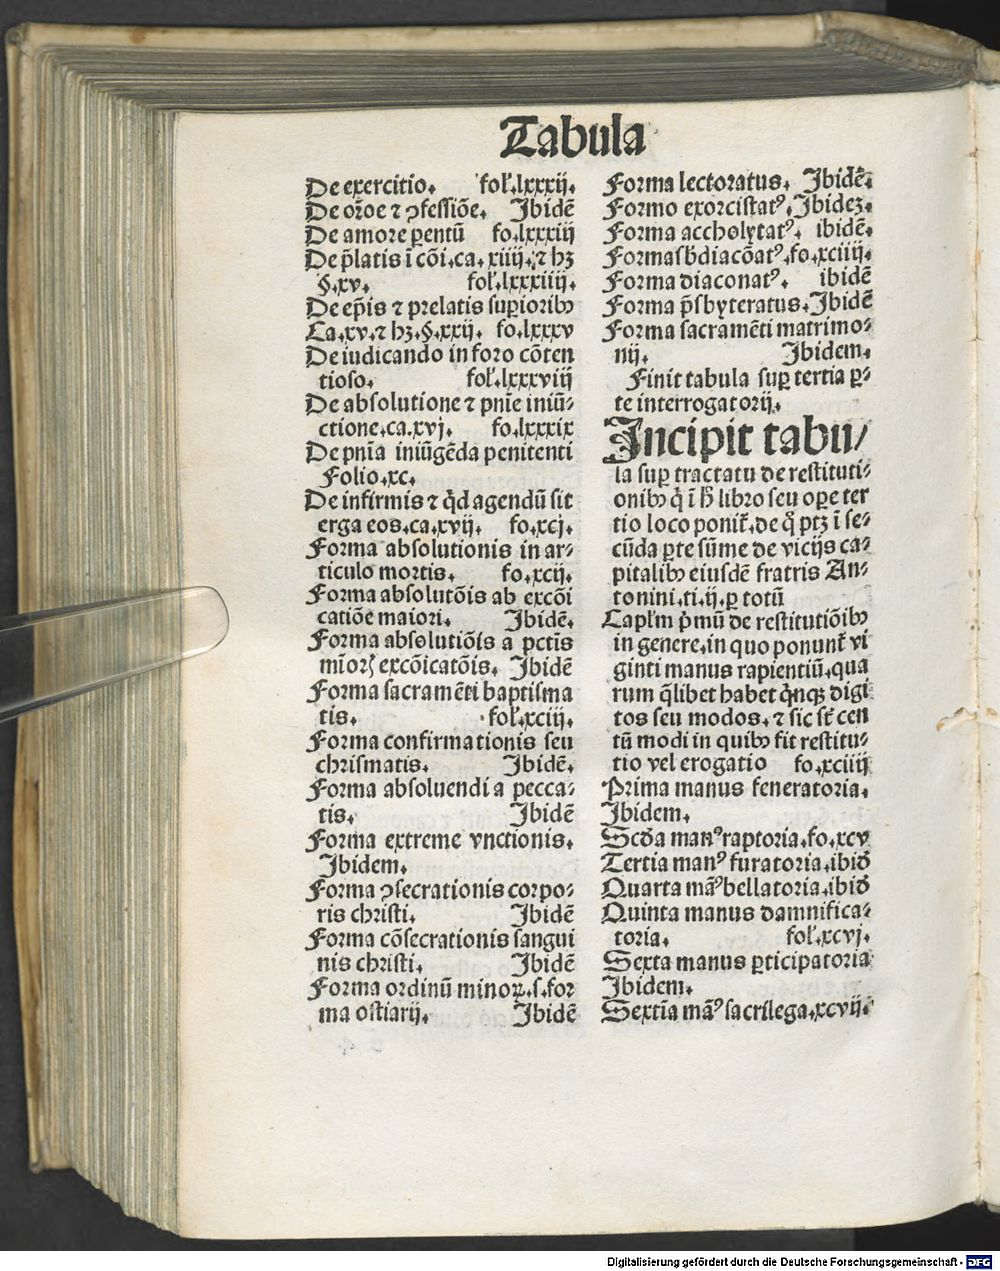 Tabula
De exercitio. fol̉.lxxxij.
De or̄oe ⁊ ꝯfessiōe. Ibidē
De amore ꝑentū fo.lxxxiij
De p̄latis ī cōi.ca.xiiij.⁊ hꝫ
§.xv. fol̉.lxxxiiij.
De ep̄is ⁊ prelatis suꝑioribꝰ
Ca.xv.⁊ hꝫ.§.xxij. fo.lxxxv
De iudicando in foro cōten
tioso. fol̉.lxxxviij
De absolutione ⁊ pnīe iniū⸗
ctione.ca.xvj. fo.lxxxix
De pnīa iniūgēda penitenti
Folio.xc.
De infirmis ⁊ qͥd agendū sit
erga eos.ca.xvij. fo.xcj.
Forma absolutionis in ar⸗
ticulo mortis. fo.xcij.
Forma absolutōis ab excōi
catiōe maiori. Ibidē.
Forma absolutiōis a pctīs
mīoꝝ excōicatōis. Ibidē
Forma sacramēti baptisma
tis. fol̉.xciij.
Forma confirmationis seu
chrismatis. Ibidē.
Forma absoluendi a pecca⸗
tis. Ibidē
Forma extreme vnctionis.
Ibidem.
Forma ꝯsecrationis corpo⸗
ris christi. Ibidē
Forma cōsecrationis sangui
nis christi. Ibidē
Forma ordinū minoꝝ.s.for
ma ostiarij. Ibidē
Forma lectoratus. Ibidē.
Formo exorcistatꝰ.Ibideꝫ.
Forma accholytatꝰ. ibidē.
Forma sb̄diacōatꝰ.fo.xciiij.
Forma diaconatꝰ. ibidē
Forma p̄sbyteratus.Ibidē
Forma sacramēti matrimo⸗
nij. Ibidem.
Finit tabula suꝑ tertia ꝑ⸗
te interrogatorij.
Incipit tabu/
la suꝑ tractatu de restituti⸗
onibꝰ q̄ ī h̄ libro seu oꝑe ter
tio loco ponit̄.de q̄ ptꝫ ī se⸗
cūda ꝑte sūme de vicijs ca⸗
pitalibꝰ eiusdē fratris An⸗
tonini.ti.ij.ꝑ totū
Capl̓m p̄mū de restitutiōibꝰ
in genere.in quo ponunt̄ vi
ginti manus rapientiū.qua
rum q̄libet habet qͥnqꝫ digi
tos seu modos.⁊ sic st̄ cen
tū modi in quibꝰ fit restitu⸗
tio vel erogatio fo.xciiij
Prima manus feneratoria.
Ibidem.
Scd̄a manꝰ raptoria.fo.xcv
Tertia manꝰ furatoria.ibid̄
Quarta māꝰ bellatoria.ibid̄
Quinta manus damnifica⸗
toria. fol̉.xcvj.
Sexta manus ꝑticipatoria
Ibidem.
Sextīa māꝰ sacrilega.xcvij.
Digitalisierung gefördert durch die Deutsche Forschungsgemeinschaft - DFG